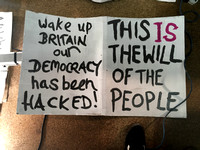 wake up
BRITAIN
our
DEMOCRACY
has been
HACKED!
THIS IS
THE WILL
OF THE
PEOPLE